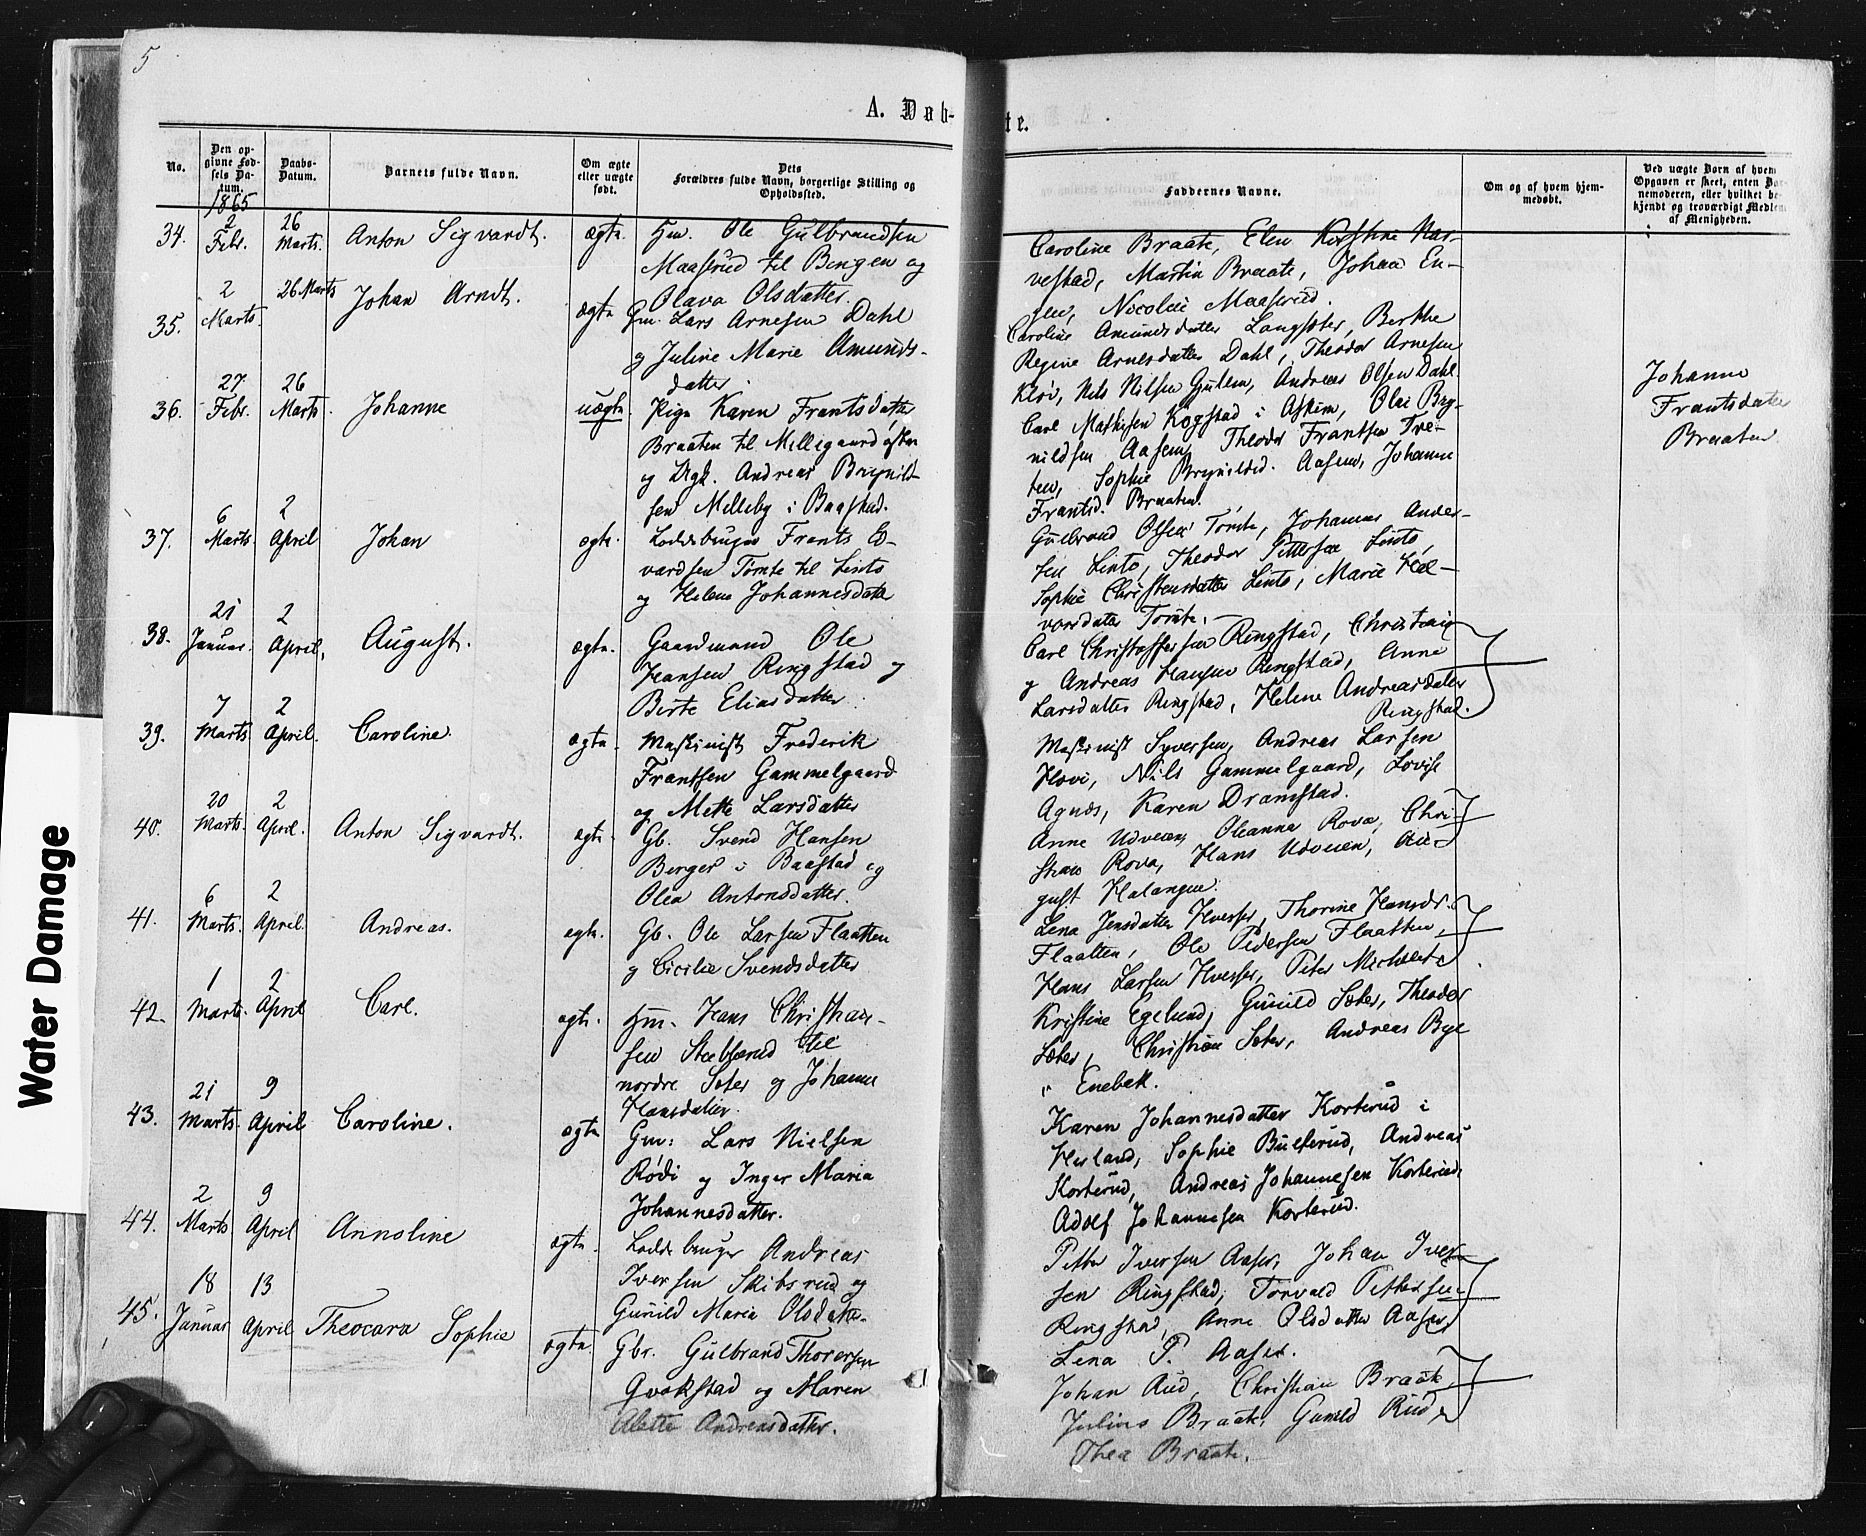 5
A. Døb-
te.
No.
Den op-
givne Fød-
sels Da-
tum.
1865
Daabs-
Datum.
Barnets fulde Navn.
Om ægte
eller uægte
født.
Dets
Forældres fulde Navn, borgerlige Stilling og
Opholdssted.
Faddernes Navne.
Om og af hvem hjem-
medøbt.
Ved uægte Børn af hvem
Opgaven er skeet, enten Bar-
nemoderen, eller hvilket be-
kjendt og troværdigt Medlem
af Menigheden.
34.
2
Febr.
26
Marts.
Anton Sigvardt.
ægte
Hm. Ole Gulbrandsen
Maaserud til Bingen og
Olava Olsdatter.
Caroline Braate, Elen Kirstine Nar-
vestad, Martin Braate, Johan En-
gen, Nicolai Maaserud.
35.
2
Marts.
26 Marts
Johan Arndt.
ægte
Gm. Lars Arnesen Dahl
og Juline Marie Amunds-
datter.
Caroline Amundsdatter Langsæter, Berthe
Regine Arnesdatter Dahl, Theodor Arnesen
Kløv, Nils Nilsen Gjulem, Andreas Olsen Dahl.
36.
27
Febr.
26
Marts.
Johanne
uægte.
Pige Karen Frantsdatter
Braaten til Millegaard
og Ugk. Andreas Brynild-
sen Melleby i Baastad.
Carl Mathisen Kogstad i Askim, Olai Bry-
nildsen Aasen, Theodor Frantsen Bra-
ten, Sophie Brynildsd. Aasen, Johanne
Frantsd. Braaten.
Johanne
Frantsdatter
Braaten
37.
6
Marts.
2
April
Johan
ægte.
Loddebruger Frants Ed-
vardsen Tømte til Linto
og Helene Johannesdatter
Gulbrand Olsen Tømte, Johannes Ander-
sen Linto, Theodor Pettersen Linto,
Sophie Christensdatter Linto, Marie Hal-
vorsdatter Tømte.
38.
21
Januar.
2
April,
August.
ægte.
Gaardmand Ole
Hansen Ringstad og
Birte Eliasdatter.
Carl Christoffersen Ringstad, Christian
og Andreas Hansen Ringstad, Anne
Larsdatter Ringstad, Helene Andreasdatter
Ringstad.
39.
7
Marts
2
April.
Caroline.
ægte.
Maskinist Frederik
Frantsen Gammelgaard
og Mette Larsdatter
Maskinist Syversen, Andreas Larsen
Hovi, Nils Gammelgaard, Lovise
Agnæs, Karen Dramstad.
40.
20
Marts.
2
April.
Anton Sigvardt.
ægte
Gb. Svend Hansen
Berger i Baastad og
Olea Antonsdatter.
Anne Udveien, Oleanna Rova, Chri-
stian Rova, Hans Udveien, Au-
gust Halangen.
41.
6
Marts.
2
April.
Andreas.
ægte.
Gb. Ole Larsen Flaatten
og Cicilie Svendsdatter
Lena Jensdatter Hverser, Thorine Hansdr.
Flaatten, Ole Pedersen Flaatten,
Hans Larsen Hverser, Peter
42.
1
Marts.
2
April
Carl.
ægte.
Hm. Hans Christian-
sen Stubberud til
nordre Sæter og Johanne
Hansdatter.
Kristine Egelund, Gunild Sæter, Theodor
Sæter, Christian Sæter, Andreas Bye
i Enebak.
43.
21
Marts.
9
April
Caroline.
ægte
Gm: Lars Nielsen
Rødi og Inger Maria
Johannesdatter.
Karen Johannesdatter Korterud i
Herland, Sophie Bulterud, Andreas
Korterud, Andreas Johannesen Korterud,
Adolf Johannesen Korterud.
44.
2
Marts
9
April
Annoline
ægte.
Loddebruger Andreas
Iversen Skibsrud og
Gunild Maria Olsdatter.
Petter Iversen Aaser, Johan Iver-
sen Ringstad, Torvald Pettersen
Ringstad, Anne Olsdatter Aaser,
Lena P. Aaser.
45.
18
Januar
13
April
Theocara Sophie
ægte.
Gbr. Gulbrand Thoresen
Qvakstad og Maren
Alette Andreasdatter.
Johan Rud, Christian Braate,
Julius Braate, Gunild Rud,
Thea Braate.
Water Damage